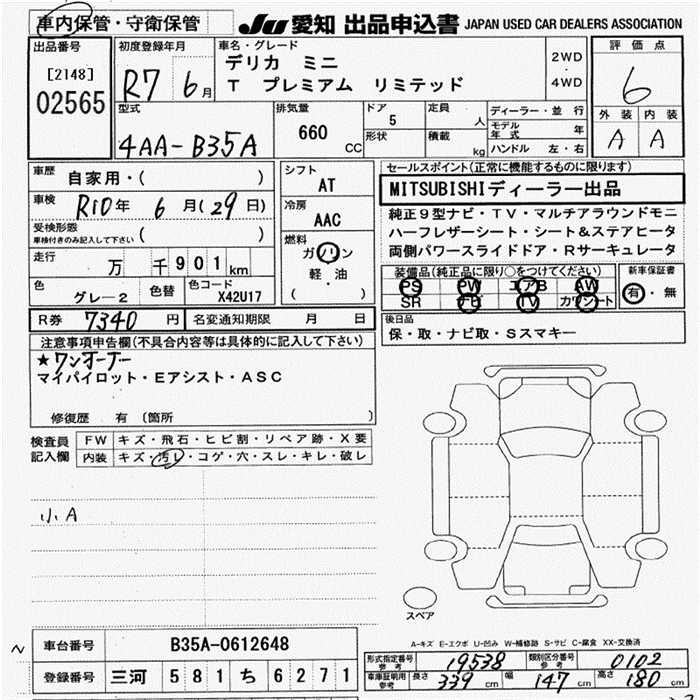 車内保管・守衛保管 JU 愛知 出品申込書 JAPAN USED CAR DEALERS ASSOCIATION
出品番号 [2148] 02565
初度登録年月 R7 6月
車名・グレード デリカ ミニ
T プレミアム リミテッド
2WD・4WD
評価点 6
外装 内装
A A
型式 4AA-B35A
排気量 660 CC
ドア 5 定員 人
形状 積載 kg
ディーラー・並行
モデル年式 年
ハンドル 左・右
車歴 自家用・( )
車検 R10年 6月(29日)
受検形態
車検付きのみ記入して下さい ( )
走行 万 千901km
色 グレー2 色替 色コード X42U17
シフト AT
冷房 AAC
燃料 ガソリン
軽・油
( )
セールスポイント(正常に機能するものに限ります)
MITSUBISHIディーラー出品
純正9型ナビ・TV・マルチアラウンドモニ
ハーフレザーシート・シート&ステアヒータ
両側パワースライドドア・Rサーキュレータ
装備品(純正品に限り○をつけてください) 新車保証書
PS PW エアB AW 有・無
SR ナビ TV カワシート
R券 7340円 名変通知期限 月 日
後日品
保・取・ナビ取・Sスマキー
注意事項申告欄(不具合内容等は具体的に記入して下さい)
★ワンオーナー
マイパイロット・Eアシスト・ASC
修復歴 有 (箇所 )
検査員記入欄
FW キズ・飛石・ヒビ割・リペア跡・X要
内装 キズ・汚レ・コゲ・穴・スレ・キレ・破レ
小A
スペア
A-キズ E-エクボ U-凹み W-補修跡 S-サビ C-腐食 XX-交換済
車台番号 B35A-0612648
登録番号 三河 581 ち 6271
形式指定番号 参考 19538 類別区分番号 参考 0102
車庫証明用 参考 長さ 339cm 幅 147cm 高さ 180cm